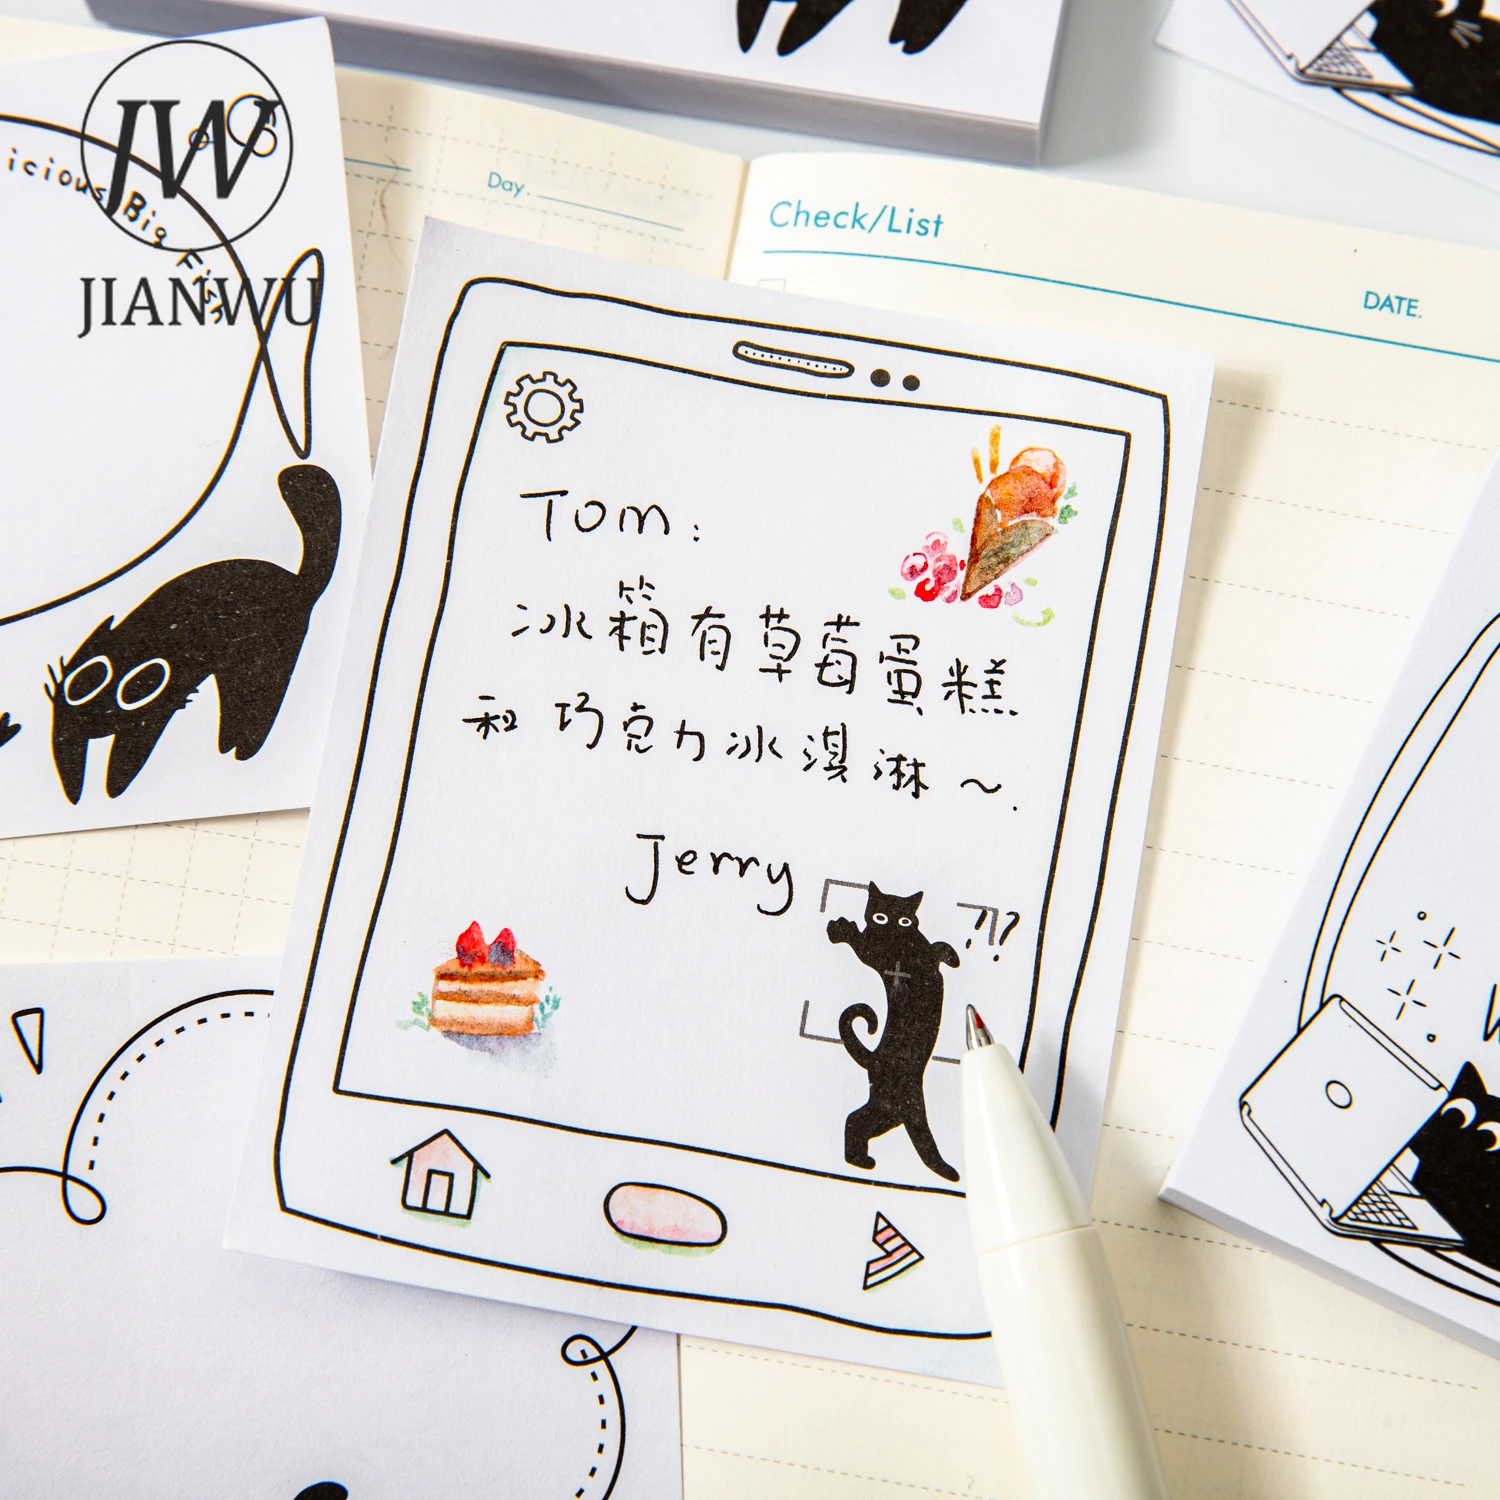 JW
JIANWU
icious Big Fish
Day.
Check/List
DATE.
Tom:
冰箱有草莓蛋糕
和巧克力冰淇淋～.
Jerry
??